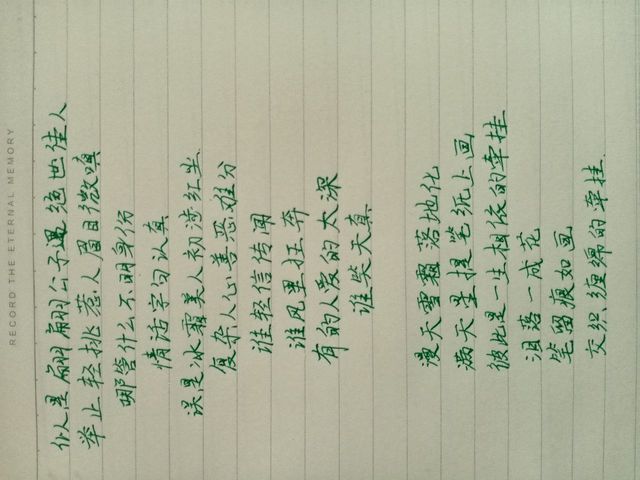 RECORD THE ETERNAL MEMORY
似是翩翩公子遇绝世佳人
举止轻挑惹人眉目微嗔
哪管什么不明身份
情话字句认真
误是冰霜美人初涉红尘
复杂人心善恶难分
谁轻信传闻
谁风里狂奔
有的人爱的太深
谁笑天真
漫天雪颗落地化
满天星提笔纸上画
彼此是一生相依的牵挂
泪落一成花
笔留痕如画
交织缠绵的牵挂